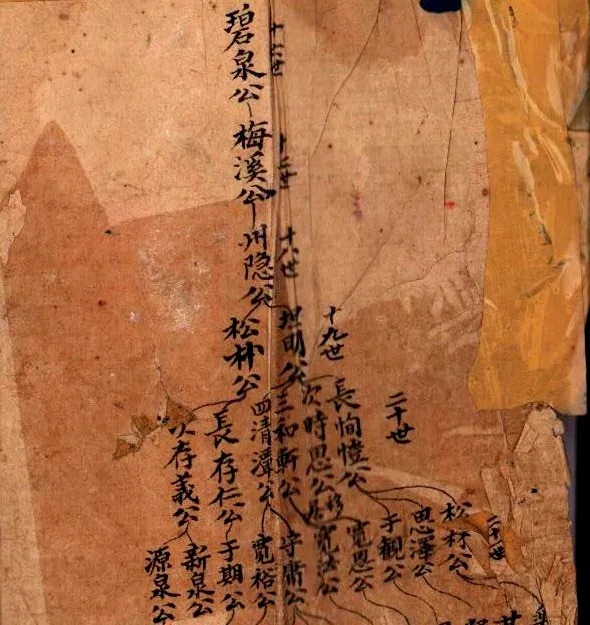 十六世
碧泉公
十七世
梅溪公
十八世
州隐公
十九世
坦明公
松林公
二十世
長恂慥公
次時思公
三和軒公
四清潭公
長存仁公
次存義公
二十一世
松林公
思澤公
于觀公
寬恩公
寬法公
守庸公
寬裕公
于期公
新泉公
源泉公